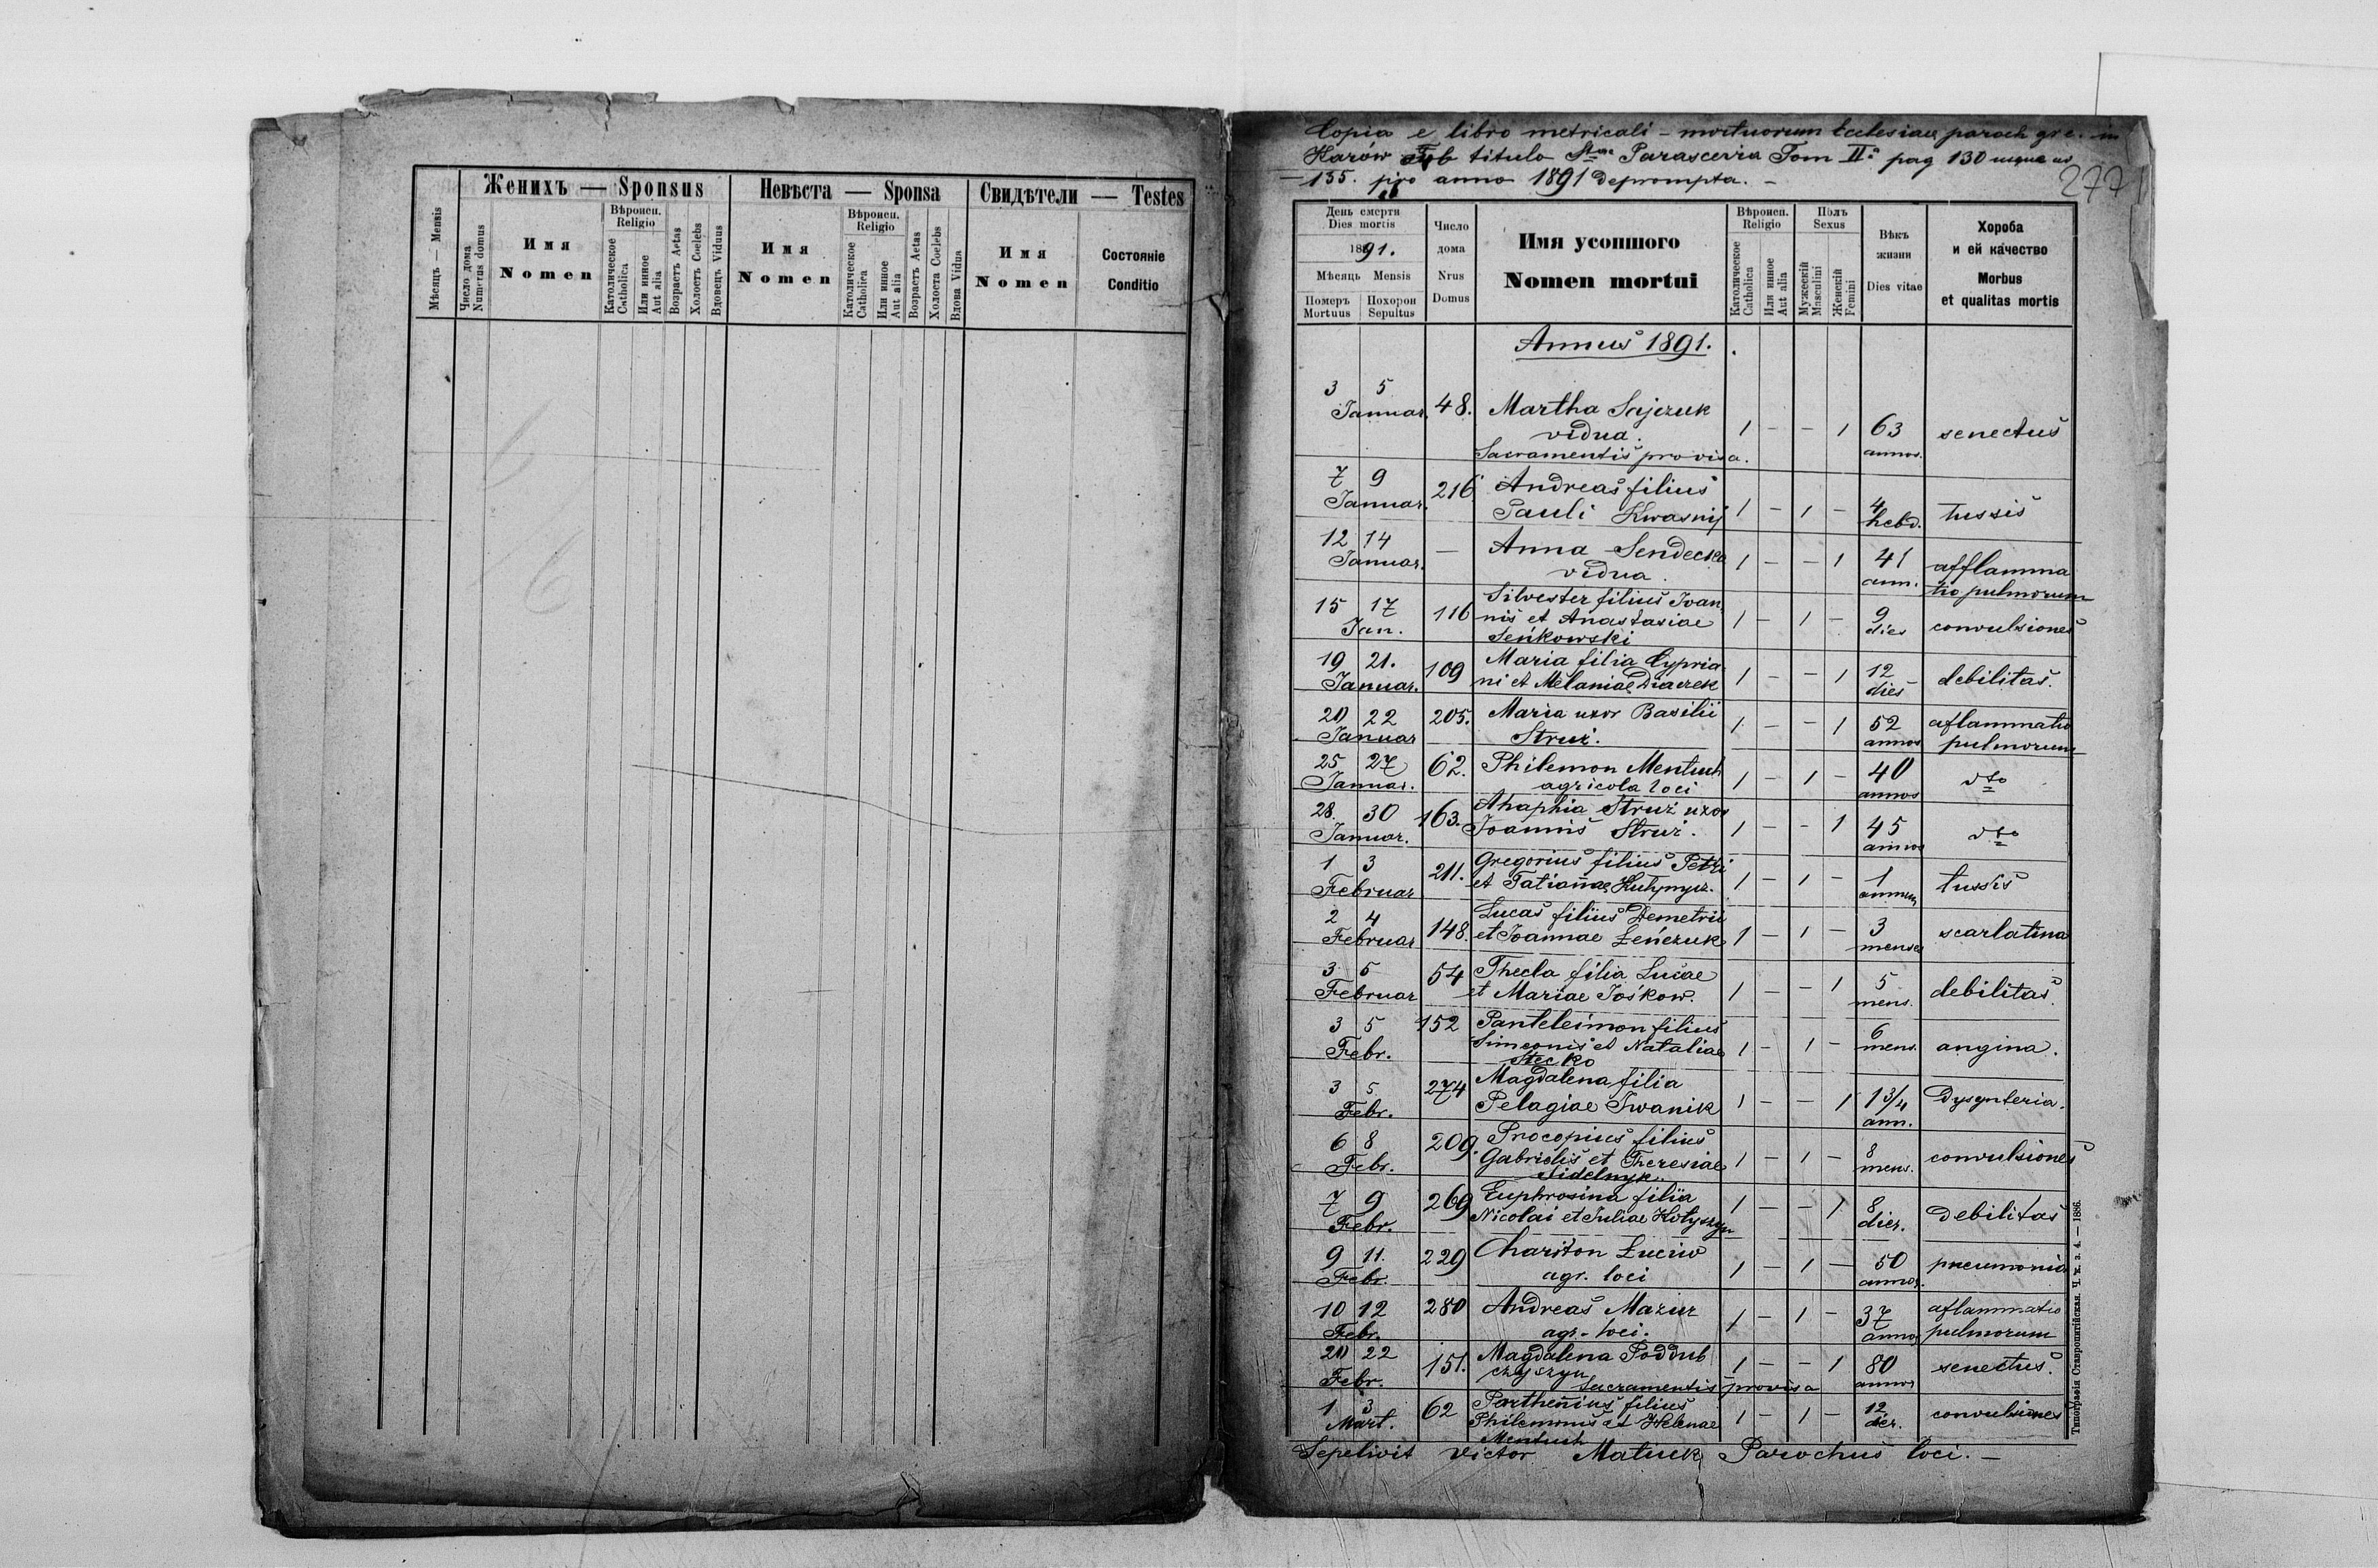 Женихъ — Sponsus
Невѣста — Sponsa
Свидѣтели — Testes
Мѣсяць — Mensis
Число дома
Numerus domus
Имя
Nomen
Вѣроисп.
Religio
Католическое
Catholica
Или инное
Aut alia
Возрастъ Aetas
Холостъ Coelebs
Вдовецъ Viduus
Имя
Nomen
Вѣроисп.
Religio
Католическое
Catholica
Или инное
Aut alia
Возрастъ Aetas
Холоста Coelebs
Вдова Vidua
Имя
Nomen
Состояніе
Conditio
Copia e libro metricali - mortuorum Ecclesiae paroch gr c. in
Karów sub titulo Stae Parascevia Tom II. pag 130 usque ad
— 135. pro anno 1891 deprompta. —
277
День смерти
Dies mortis
1891.
Мѣсяць Mensis
Померъ
Mortuus
Похорон
Sepultus
Число
дома
Nrus
Domus
Имя усопшого
Nomen mortui
Вѣроисп.
Religio
Католическое
Catholica
Или инное
Aut alia
Полъ
Sexus
Мужескій
Masculini
Женскій
Femini
Вѣкъ
жизни
Dies vitae
Хороба
и ей качество
Morbus
et qualitas mortis
Annus 1891.
3 5
Januar. 48. Martha Sajczuk
vidua. 1 - - 1 63 senectus
Sacramentis provisa. annos.
7 9
Januar. 216 Andreas filius
Pauli Kwasnij 1 - 1 - 4 hebd. tussis
12 14
Januar. — Anna Sendecka
vidua. 1 - - 1 41 ann. afflamma
tio pulmorum
15 17 Silvester filius Ioan
Jan. 116 nis et Anastasiae 1 - 1 - 9 dies convulsiones
Seńkowski
19 21. 109 Maria filia Cypria
Januar. ni et Melaniae Diaczek 1 - - 1 12 dies debilitas.
20 22 205. Maria uxor Basilii
Januar Struż. 1 - - 1 52 annos aflammatio
pulmorum
25 27 62. Philemon Mentuch
Januar. agricola loci 1 - 1 - 40 annos dto
28. 30 163. Ahaphia Struż uxor
Januar. Joannis Struż. 1 - - 1 45 annos dto
1 3 211. Gregorius filius Petri
Februar et Tatianae 1 - 1 - 1 annum tussis
2 4 148. Lucas filius Demetrii
Februar et Joannae Leńczuk 1 - 1 - 3 menses scarlatina
3 5 54 Thecla filia Lucae
Februar et Mariae Jośkow. 1 - - 1 5 mens. debilitas.
3 5 152 Panteleimon filius
Febr. Simeonis et Nataliae 1 - 1 - 6 mens. angina.
Stecko
3 5 274 Magdalena filia
Febr. Pelagiae Iwanik 1 - - 1 1 3/4 ann. Dysynteria.
6 8 209. Procopius filius
Febr. Gabrielis et Theresiae 1 - 1 - 8 mens. convulsiones
Sidelnyk.
7 9 269 Euphrosina filia
Febr. Nicolai et Juliae 1 - - 1 8 dier. debilitas
9 11. 229 Chariton Łuciw
Febr. agr. loci 1 - 1 - 50 annos. pneumonia
10 12 280 Andreas Mazur
Febr. agr. loci. 1 - 1 - 37 annos aflammatio
pulmorum
20 22 151. Magdalena Poddub
Febr. czyszyn 1 - - 1 80 annos senectus.
Sacramentis provisa
1 3 62 Parthenius filius
Mart. Philemonis et Helenae 1 - 1 - 12 dier. convulsiones
Mentuch
Sepelivit Victor Matiuk Parochus loci. —
Типографія Ставропигійская. Ч. к. з. 4. — 1886.